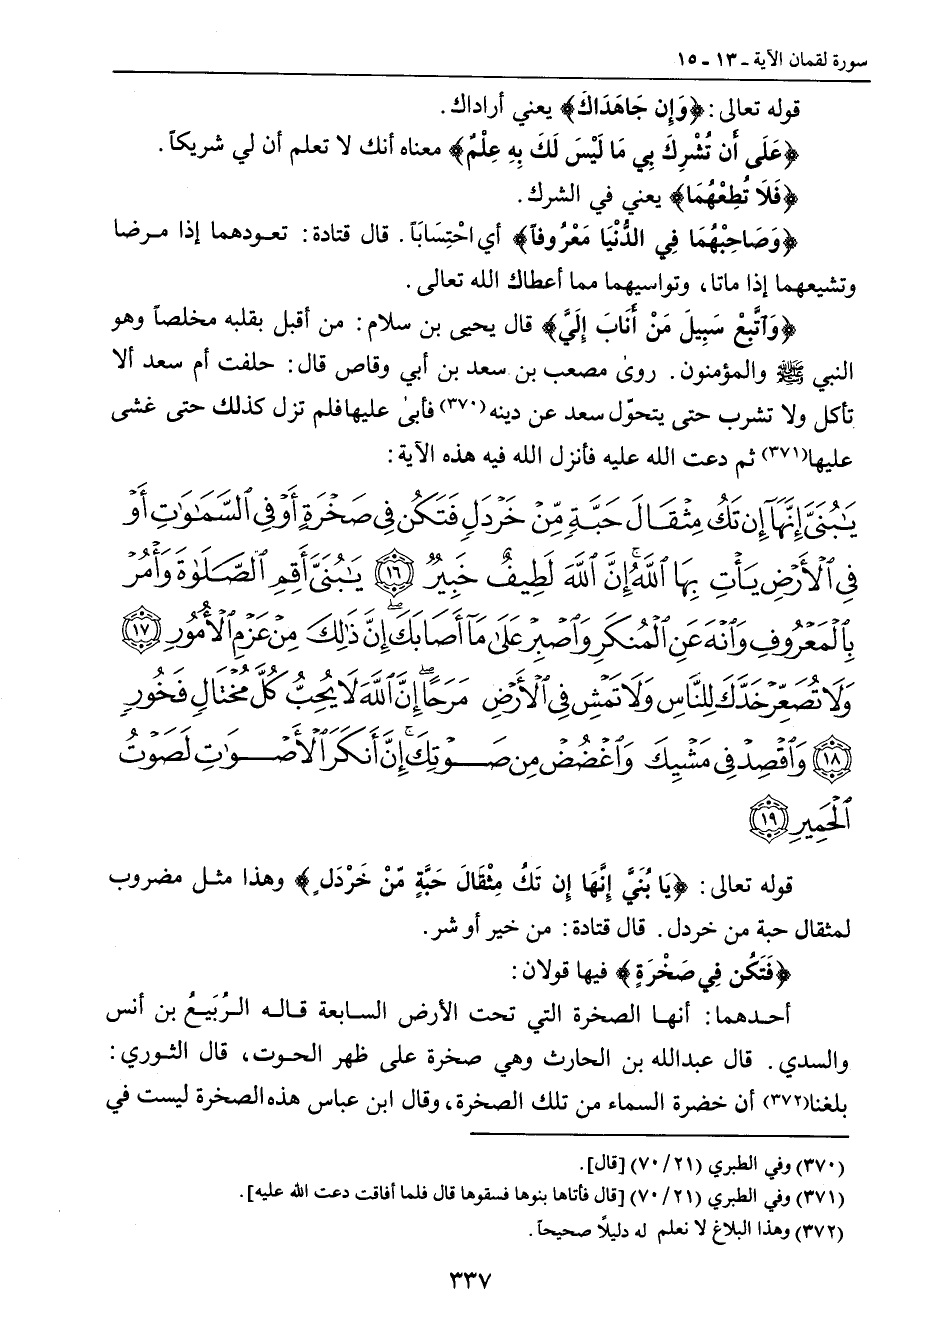 سورة لقمان الآية ـ ١٣ ـ ١٥
قوله تعالى: ﴿وَإِن جَاهَدَاكَ﴾ يعني أراداك.
﴿عَلَى أَن تُشْرِكَ بِي مَا لَيْسَ لَكَ بِهِ عِلْمٌ﴾ معناه أنك لا تعلم أن لي شريكاً.
﴿فَلَا تُطِعْهُمَا﴾ يعني في الشرك.
﴿وَصَاحِبْهُمَا فِي الدُّنْيَا مَعْرُوفاً﴾ أي احْتِسَابَاً. قال قتادة: تعودهما إذا مرضا
وتشيعهما إذا ماتا، وتواسيهما مما أعطاك الله تعالى.
﴿وَٱتَّبِعْ سَبِيلَ مَنْ أَنَابَ إِلَيَّ﴾ قال يحيى بن سلام: من أقبل بقلبه مخلصاً وهو
النبي ﷺ والمؤمنون. روىٰ مصعب بن سعد بن أبي وقاص قال: حلفت أم سعد ألا
تأكل ولا تشرب حتى يتحوّل سعد عن دينه(٣٧٠) فأبىٰ عليها فلم تزل كذلك حتى غشى
عليها(٣٧١) ثم دعت الله عليه فأنزل الله فيه هذه الآية:
يَٰبُنَىَّ إِنَّهَآ إِن تَكُ مِثْقَالَ حَبَّةٍ مِّنْ خَرْدَلٍ فَتَكُن فِى صَخْرَةٍ أَوْ فِى ٱلسَّمَٰوَٰتِ أَوْ
فِى ٱلْأَرْضِ يَأْتِ بِهَا ٱللَّهُ ۚ إِنَّ ٱللَّهَ لَطِيفٌ خَبِيرٌ ١٦ يَٰبُنَىَّ أَقِمِ ٱلصَّلَوٰةَ وَأْمُرْ
بِٱلْمَعْرُوفِ وَٱنْهَ عَنِ ٱلْمُنكَرِ وَٱصْبِرْ عَلَىٰ مَآ أَصَابَكَ ۖ إِنَّ ذَٰلِكَ مِنْ عَزْمِ ٱلْأُمُورِ ١٧
وَلَا تُصَعِّرْ خَدَّكَ لِلنَّاسِ وَلَا تَمْشِ فِى ٱلْأَرْضِ مَرَحًا ۖ إِنَّ ٱللَّهَ لَا يُحِبُّ كُلَّ مُخْتَالٍ فَخُورٍ
١٨ وَٱقْصِدْ فِى مَشْيِكَ وَٱغْضُضْ مِن صَوْتِكَ ۚ إِنَّ أَنكَرَ ٱلْأَصْوَٰتِ لَصَوْتُ
ٱلْحَمِيرِ ١٩
قوله تعالى: ﴿يَا بُنَيَّ إِنَّهَا إِن تَكُ مِثْقَالَ حَبَّةٍ مِّنْ خَرْدَلٍ﴾ وهذا مثل مضروب
لمثقال حبة من خردل. قال قتادة: من خير أو شر.
﴿فَتَكُن فِي صَخْرَةٍ﴾ فيها قولان:
أحدهما: أنها الصخرة التي تحت الأرض السابعة قاله الرُبَيعُ بن أنس
والسدي. قال عبدالله بن الحارث وهي صخرة على ظهر الحوت، قال الثوري:
بلغنا(٣٧٢) أن خضرة السماء من تلك الصخرة، وقال ابن عباس هذه الصخرة ليست في
(٣٧٠) وفي الطبري (٢١/ ٧٠) [قال].
(٣٧١) وفي الطبري (٢١/ ٧٠) [قال فأتاها بنوها فسقوها قال فلما أفاقت دعت الله عليه].
(٣٧٢) وهذا البلاغ لا نعلم له دليلاً صحيحاً.
٣٣٧